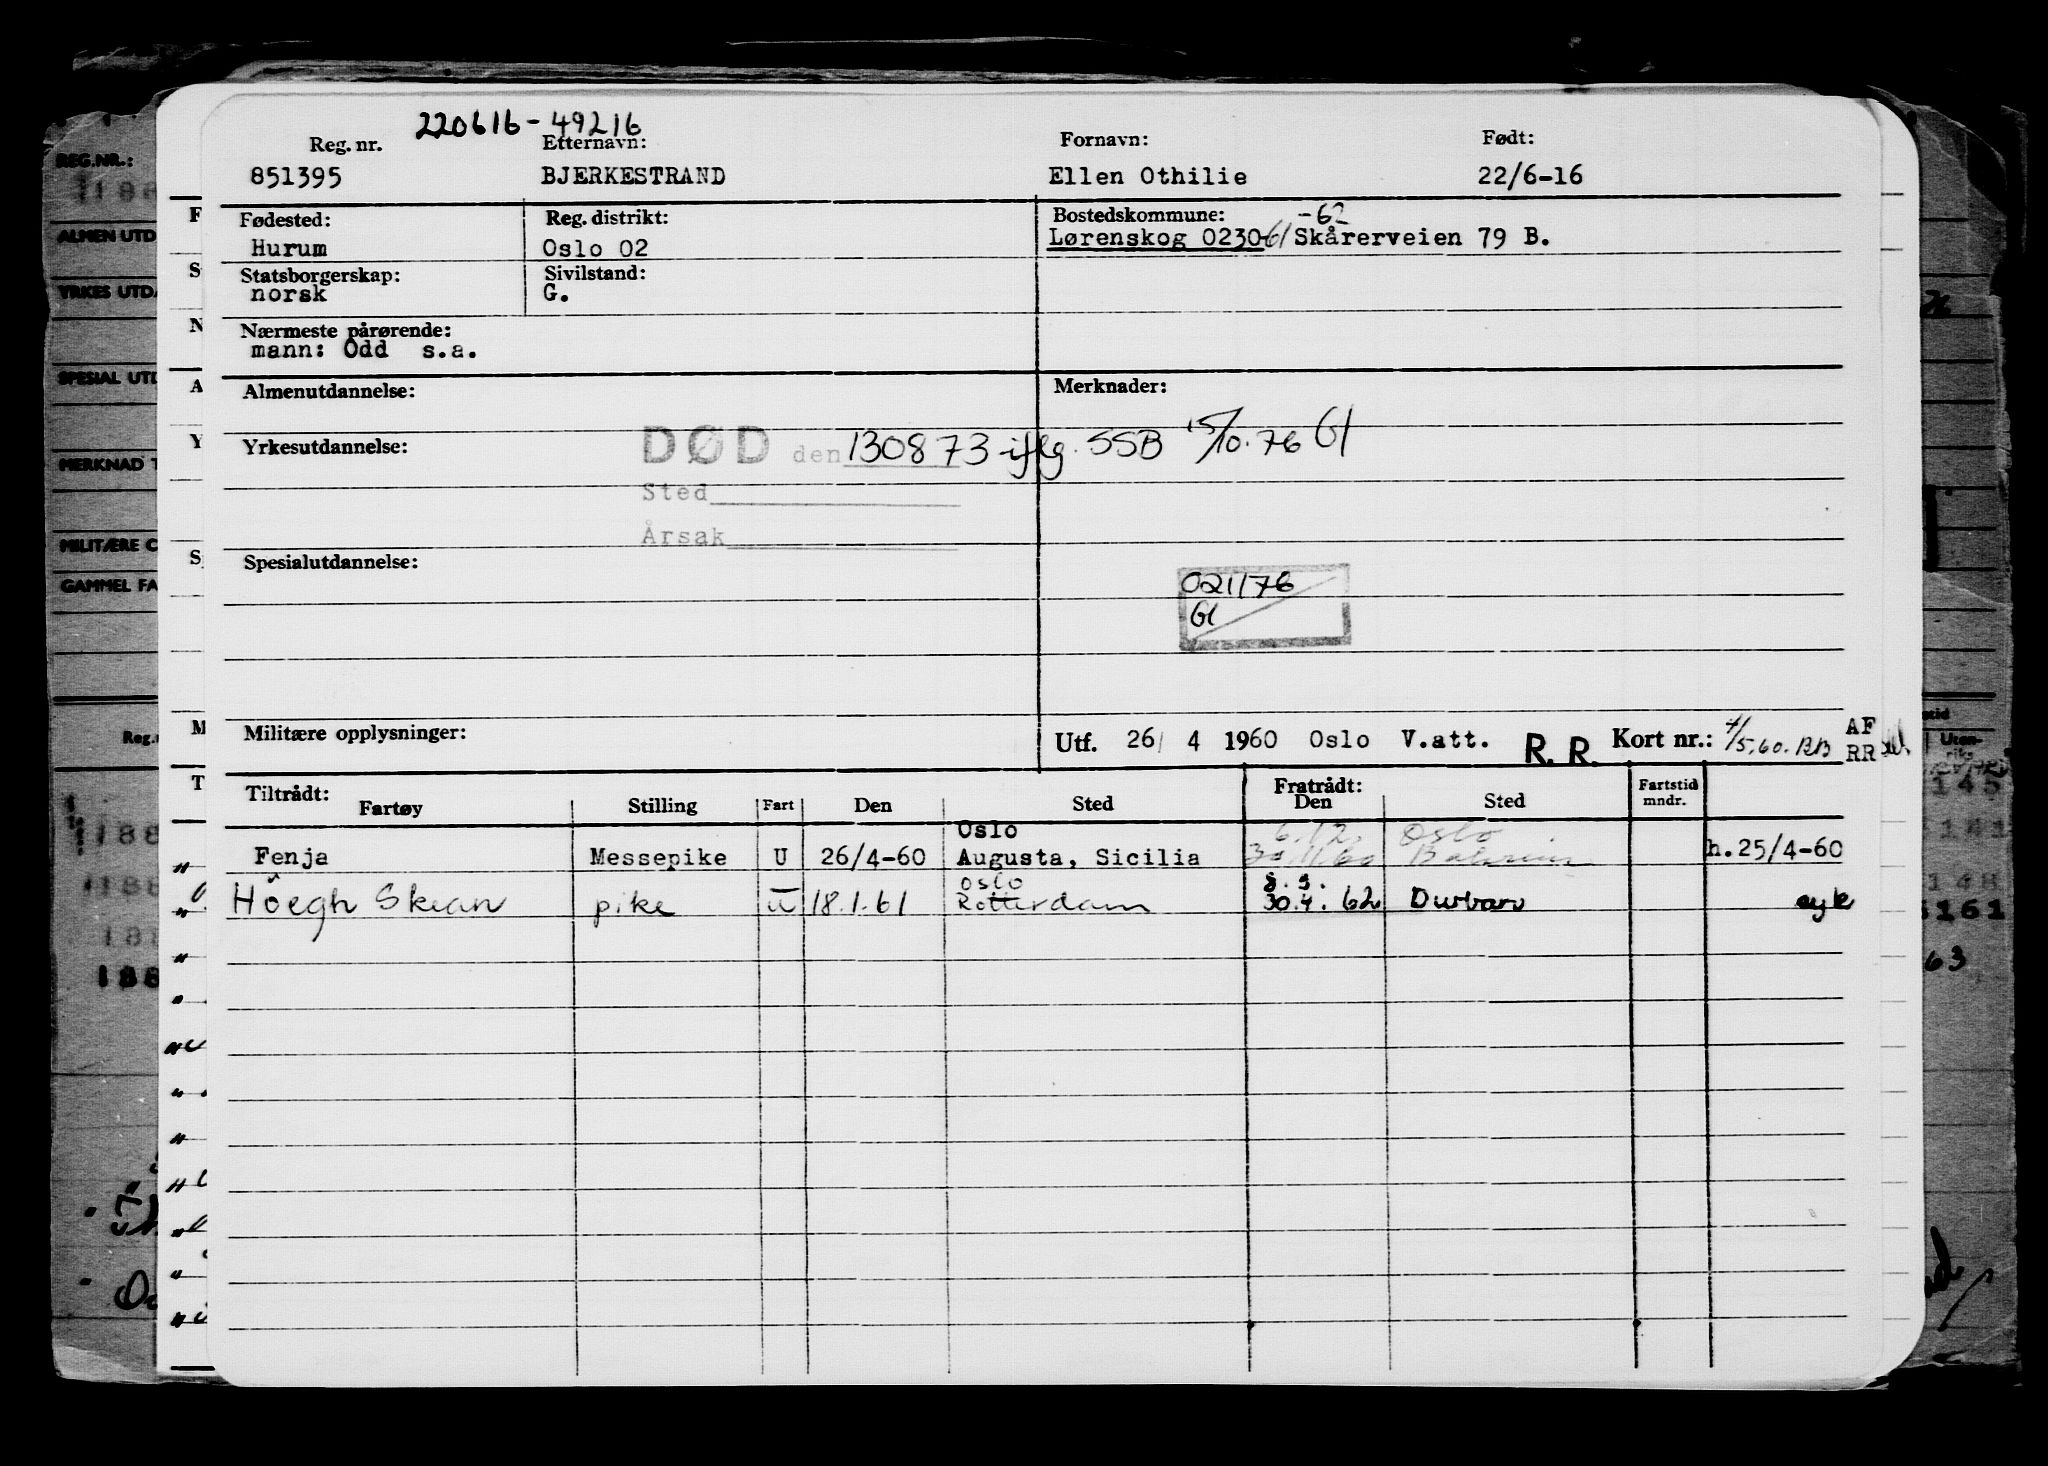 220616-49216
Reg. nr. Etternavn: Fornavn: Født:
851395 BJERKESTRAND Ellen Othilie 22/6-16
Fødested: Reg. distrikt: Bostedskommune: -62
Hurum Oslo 02 Lørenskog 0230-61 Skårerveien 79 B.
Statsborgerskap: Sivilstand:
norsk G.
Nærmeste pårørende:
mann: Odd s.a.
Almenutdannelse: Merknader:
Yrkesutdannelse: DØD den 130873 iflg. SSB 15/10.76 Gl
Sted
Årsak
Spesialutdannelse:
021/76
Gl
Militære opplysninger: Utf. 26/ 4 1960 Oslo V.att. R. R. Kort nr.: 4/5.60. BB AF
RR
Tiltrådt: Fratrådt: Fartstid
Fartøy Stilling Fart Den Sted Den Sted mndr.
Oslo 6.12. Oslo
Fenja Messepike U 26/4-60 Augusta, Sicilia 30/11.60 h.25/4-60
Oslo 8.9.
Höegh Skean pike U 18.1.61 Rotterdam 30.4.62 Durban syk
REG.NR.:
ALMEN UTD
YRKES UTD
SPESIAL UTD
MERKNAD T
MILITÆRE O
GAMMEL FA